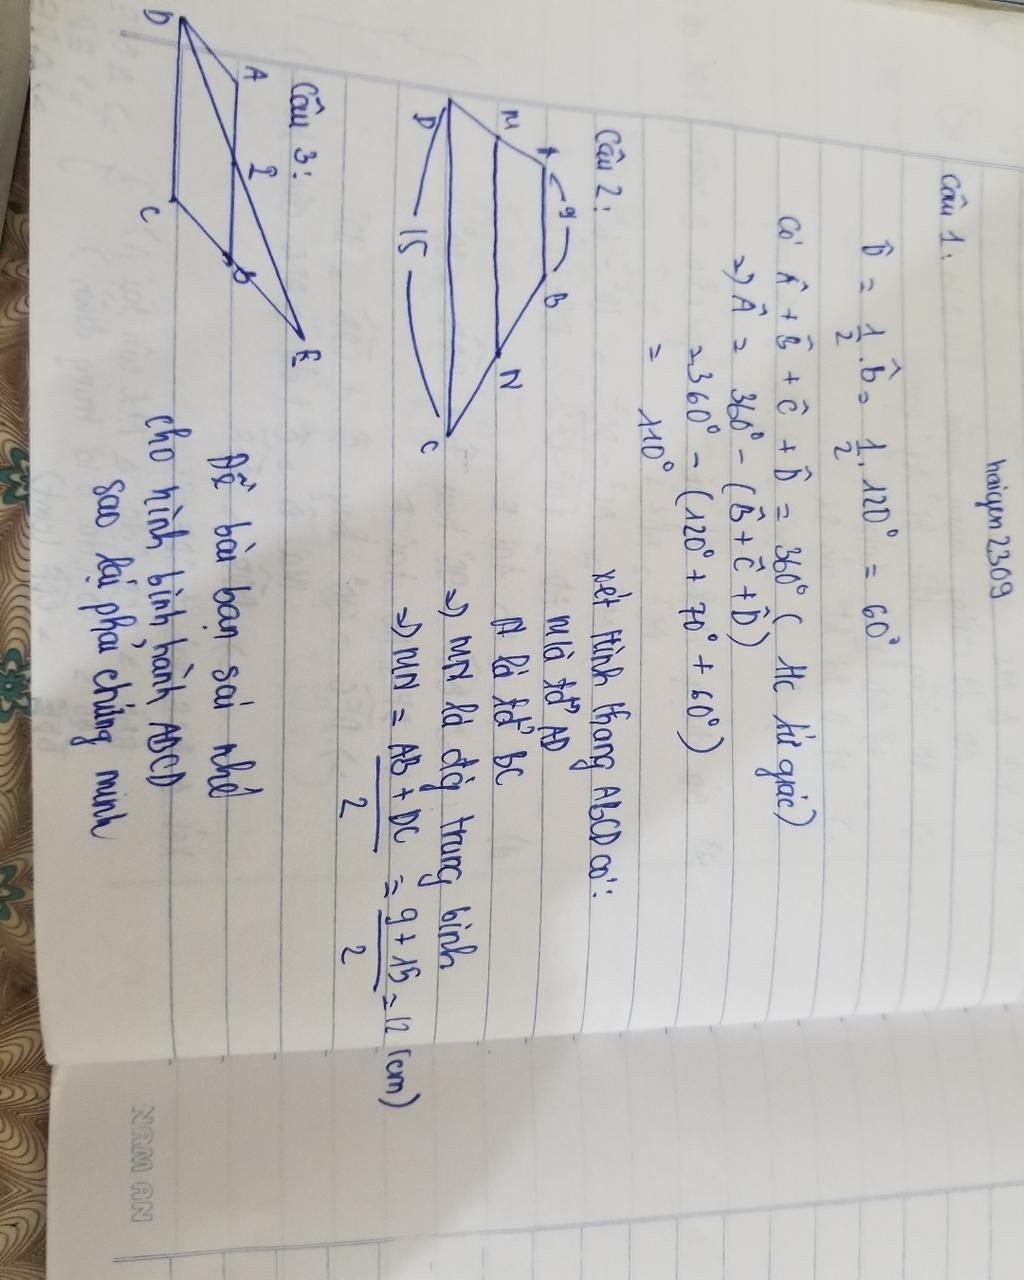 haiyen2309
Câu 1:
D̂ = 1/2 . b̂ = 1/2 . 120° = 60°
Có Â + B̂ + Ĉ + D̂ = 360° ( tc tứ giác)
=) Â = 360° - (B̂ + Ĉ + D̂)
= 360° - (120° + 70° + 60°)
= 110°
Câu 2:
A 9 B
M N
D 15 C
xét hình thang ABCD có:
M là tđ AD
N là tđ BC
=) MN là đg trung bình
=) MN = AB + DC / 2 = 9 + 15 / 2 = 12 (cm)
Câu 3:
A I B E
D C
Đề bài bạn sai nhé
cho hình bình hành ABCD
sao lại phải chứng minh
NAM AN